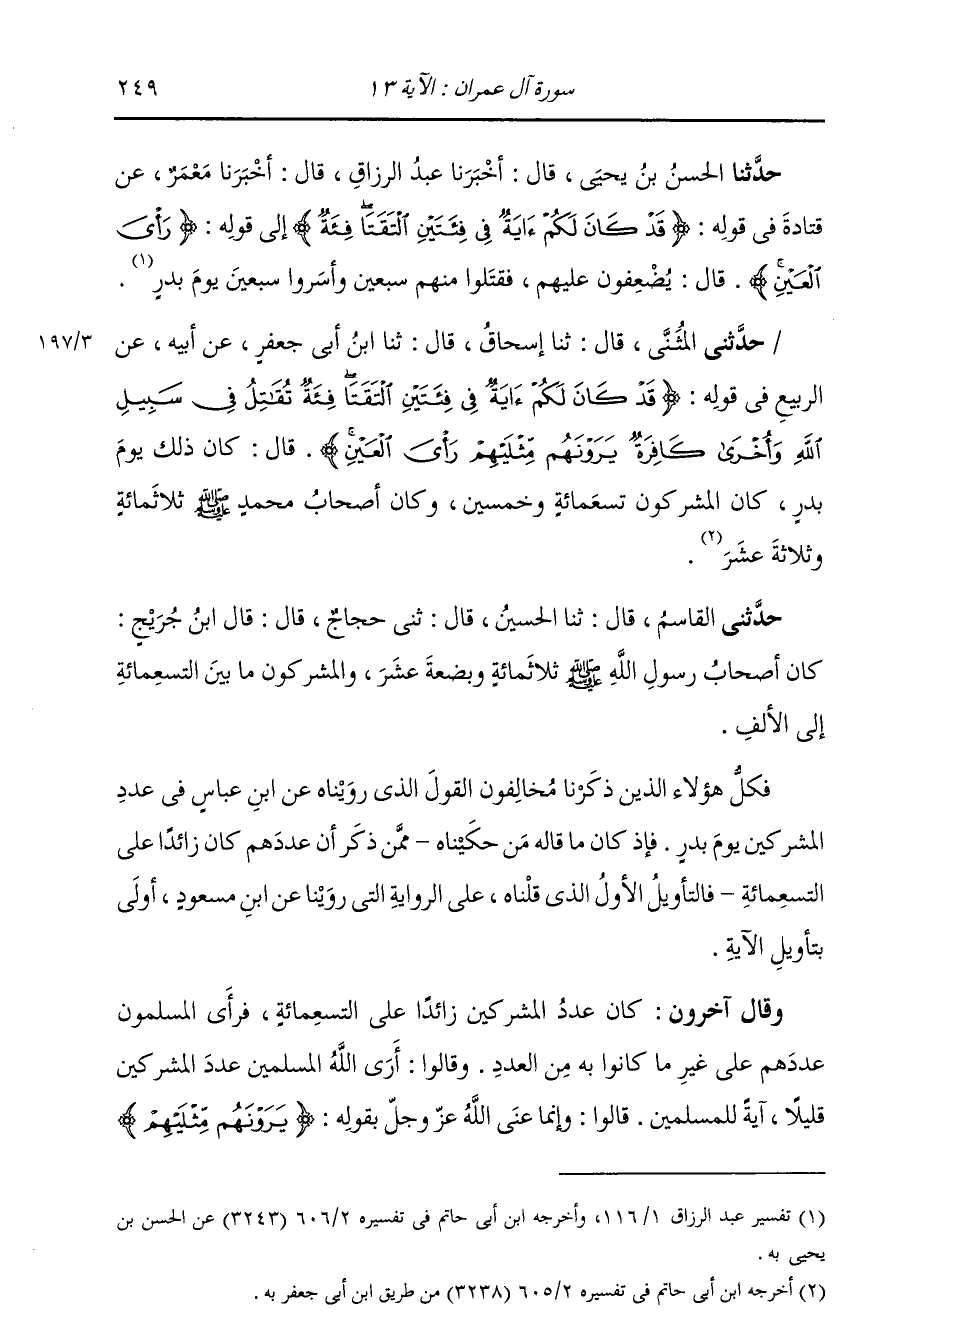 سورة آل عمران : الآية ١٣
٢٤٩
حدَّثنا الحسنُ بنُ يحيَى ، قال : أخْبَرَنا عبدُ الرزاقِ ، قال : أخْبَرَنا مَعْمَرٌ ، عن
قتادةَ فى قولِه : ﴿ قَدْ كَانَ لَكُمْ ءَايَةٌ فِى فِئَتَيْنِ ٱلْتَقَتَا ۖ فِئَةٌ ﴾ إلى قولِه : ﴿ رَأْىَ
ٱلْعَيْنِ ۚ ﴾ . قال : يُضْعِفون عليهم ، فقتَلوا منهم سبعين وأسَروا سبعينَ يومَ بدرٍ (١) .
/ حدَّثنى المُثَنَّى ، قال : ثنا إسحاقُ ، قال : ثنا ابنُ أبى جعفرٍ ، عن أبيه ، عن
١٩٧/٣
الربيعِ فى قولِه : ﴿ قَدْ كَانَ لَكُمْ ءَايَةٌ فِى فِئَتَيْنِ ٱلْتَقَتَا ۖ فِئَةٌ تُقَـٰتِلُ فِى سَبِيلِ
ٱللَّهِ وَأُخْرَىٰ كَافِرَةٌ يَرَوْنَهُم مِّثْلَيْهِمْ رَأْىَ ٱلْعَيْنِ ۚ ﴾ . قال : كان ذلك يومَ
بدرٍ ، كان المشركون تسعَمائةٍ وخمسين ، وكان أصحابُ محمدٍ ﷺ ثلاثَمائةٍ
وثلاثةَ عشَرَ (٢) .
حدَّثنى القاسمُ ، قال : ثنا الحسينُ ، قال : ثنى حجاجٌ ، قال : قال ابنُ جُرَيْجٍ :
كان أصحابُ رسولِ اللَّهِ ﷺ ثلاثَمائةٍ وبضعةَ عشَرَ ، والمشركون ما بينَ التسعِمائةِ
إلى الألفِ .
فكلُّ هؤلاء الذين ذكَرْنا مُخالِفون القولَ الذى روَيْناه عن ابنِ عباسٍ فى عددِ
المشركين يومَ بدرٍ . فإذ كان ما قاله مَن حكَيْناه – ممَّن ذكَر أن عددَهم كان زائدًا على
التسعِمائةِ – فالتأويلُ الأولُ الذى قلْناه ، على الروايةِ التى روَيْنا عن ابنِ مسعودٍ ، أولَى
بتأويلِ الآيةِ .
وقال آخرون : كان عددُ المشركين زائدًا على التسعِمائةِ ، فرأَى المسلمون
عددَهم على غيرِ ما كانوا به مِن العددِ . وقالوا : أَرَى اللَّهُ المسلمين عددَ المشركين
قليلًا ، آيةً للمسلمين . قالوا : وإنما عنَى اللَّهُ عزّ وجلّ بقولِه : ﴿ يَرَوْنَهُم مِّثْلَيْهِمْ ﴾
(١) تفسير عبد الرزاق ١/ ١١٦، وأخرجه ابن أبى حاتم فى تفسيره ٦٠٦/٢ (٣٢٤٣) عن الحسن بن
يحيى به .
(٢) أخرجه ابن أبى حاتم فى تفسيره ٦٠٥/٢ (٣٢٣٨) من طريق ابن أبى جعفر به .